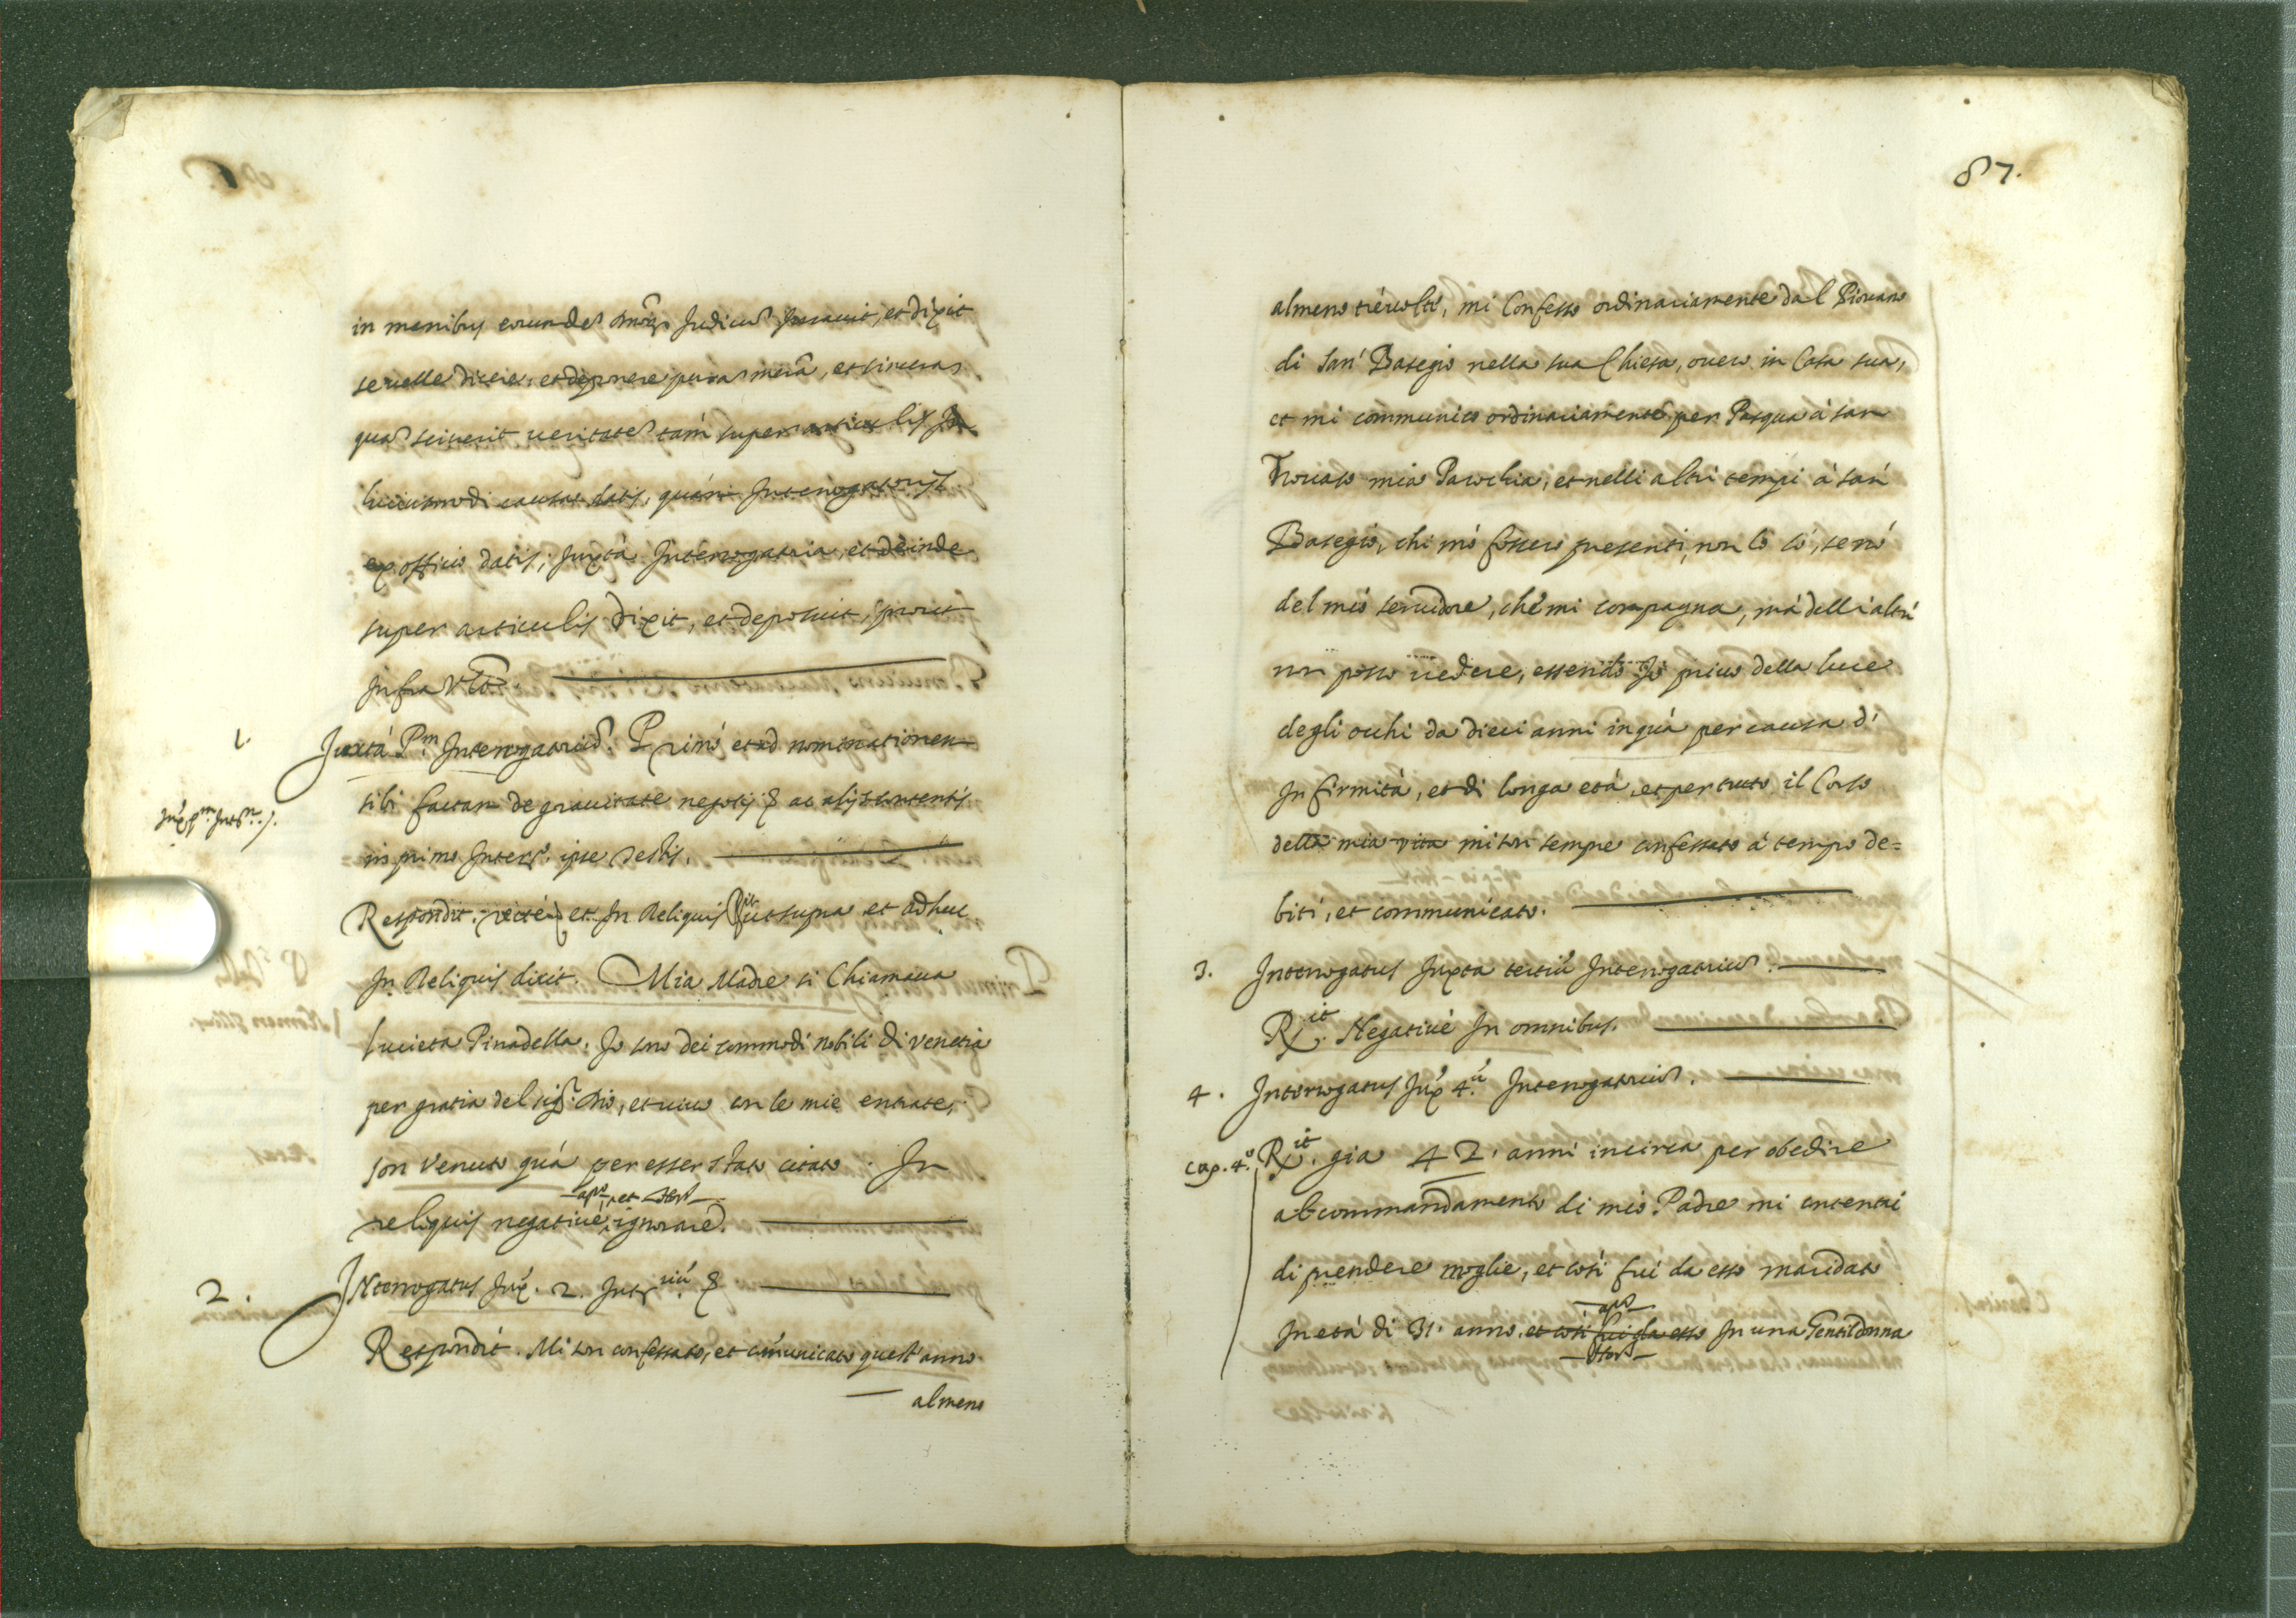 in manibus eorundem Dnōrq Judicum Jurauit, et dixit
se uelle dicere, et deponere puram merā, et sinceram
quam sciuerit ueritatem tam super articulis In
huiusmodi causa datis, quam Interrogatorijs
ex officio datis; Juxta Interrogatoria, et deinde
super articulis dixit, et deposuit, prout
Infra Vlt.
1.
Juxta Pm Interrogatorium. Primo et ad nominationem
sibi factam de grauitate negotij & ac alijs contentis
Jux pm. Int.m
in primo Interro. ipse testis.
Respondit. recte et In Reliquis Rit ut supra et adhuc
In Reliquis dicit. Mia Madre si Chiamaua
Lucieta Pinadella. Jo sono dei commodi nobili di Venetia
per gratia del sigr. Dio, et uiuo con le mie entrate,
son venuto quà per esser stato citato. In
reliquis negatiue, ignorare.
2.
INterrogatus Jux. 2. Intr.um &
Respondit. Mi son confessato, et comunicato quest'anno
almeno
87.
almeno tre uolte, mi Confesso ordinariamente dal Piouano
di San Basegio nella sua Chiesa, ouero in Casa sua,
et mi communico ordinariamente per Pasqua à san
Trouaso mia Parochia, et nelli altri tempi à san
Basegio, chi mò fossero presenti, non lo sò, se nò
del mio seruidore, che mi compagna, mà delli altri
non posso uedere, essendo Jo priuo della luce
degli ochi da dieci anni in quà per causa d'
Infirmità, et di longa età, et per tutto il Corso
della mia vita mi son sempre confessato à tempo de=
biti, et communicato.
3. Interrogatus Juxta tertiū Interrogatorium.
Rit. Negatiuè In omnibus.
4. Interrogatus Jux 4.um Interrogatorium.
Cap. 4.o Rit. gia 42. anni incirca per obedire
al commandamento di mio Padre mi contentai
di prendere moglie, et così fui da esso maridato
In età di 31. anno, et così fui da esso In una Gentildonna